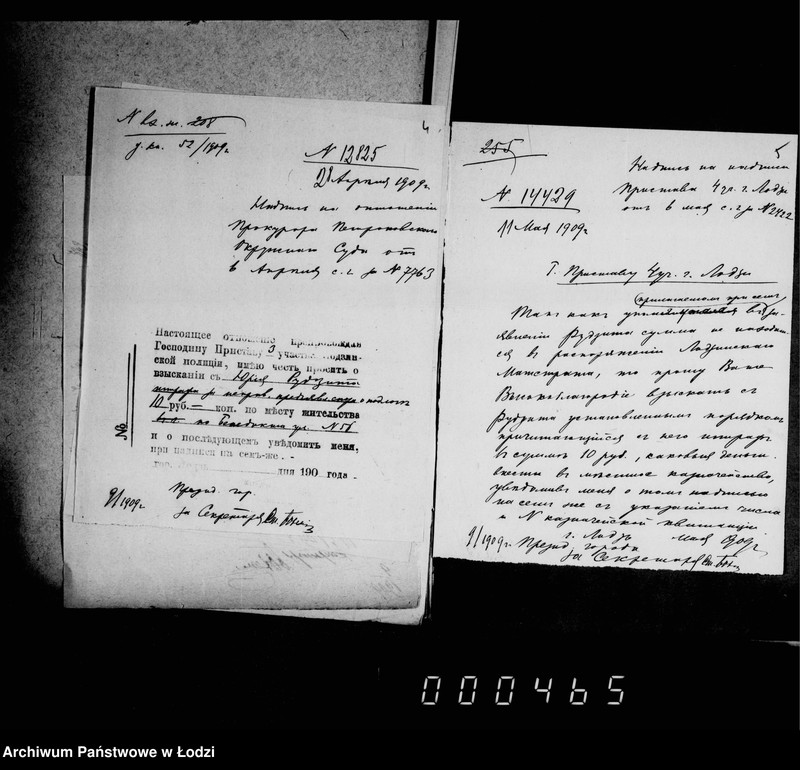 N вх. ст. 208
у. кн. 52/1909 г.
4
N 12825
28 Апреля 1909 г.
Надпись на отношении
Прокурора Петроковского
Окружнаго Суда от
6 Апреля с. г. за N 7763
Настоящее отношение препровождая
Господину Приставу 3 участка Лодзин-
ской полиции, имѣю честь просить о
взыскании съ Юрия Рудзита
штрафа за неправ.
10 руб. — коп. по мѣсту жительства
его по ул. N 56
и о последующемъ увѣдомить меня,
при надписи на семъ-же. -
дня 190 года -
№
9/1909 г.
Презид. гор.
За Секретаря
255
5
N 14429
11 Мая 1909 г.
Надпись на надписи
Пристава 4 уч. г. Лодзи
от 6 мая с. г. за N 2422
Г. Приставу 4 уч. г. Лодзи
Так как в за-
явлении Рудзита сумма не находит-
ся в распоряжении Лодзинскаго
Магистрата, то прошу Ваше
Высокоблагородие взыскать с
Рудзита установленным порядком
причитающийся с него штраф
в сумме 10 руб., каковыя деньги
внести в местное казначейство,
уведомив меня о том надписью
на сем же с указанием числа
и N казначейской квитанции
г. Лодзь мая 1909 г.
9/1909 г. Презид. города
За Секретаря
000465
Archiwum Państwowe w Łodzi